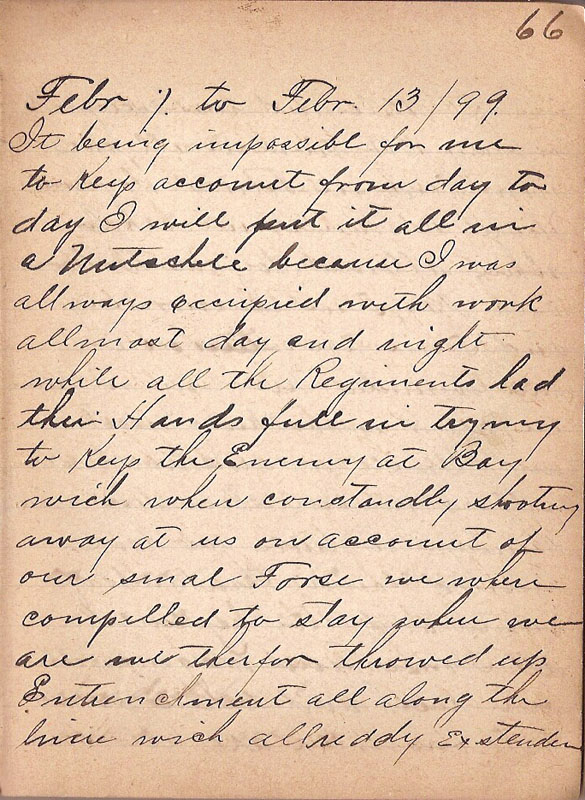 66
Febr 7. to Febr. 13/99.
It being impossible for me
to Keep account from day to
day I will put it all in
a Nutschele because I was
allways occupied with work
allmost day and night
while all the Regiments had
their Hands full in trying
to Keep the Enemy at Bay
wich when constandly shooting
away at us on account of
our smal Forse we where
compelled to stay where we
are we therfor throwed up
Entrenchment all along the
line wich allreddy Extended